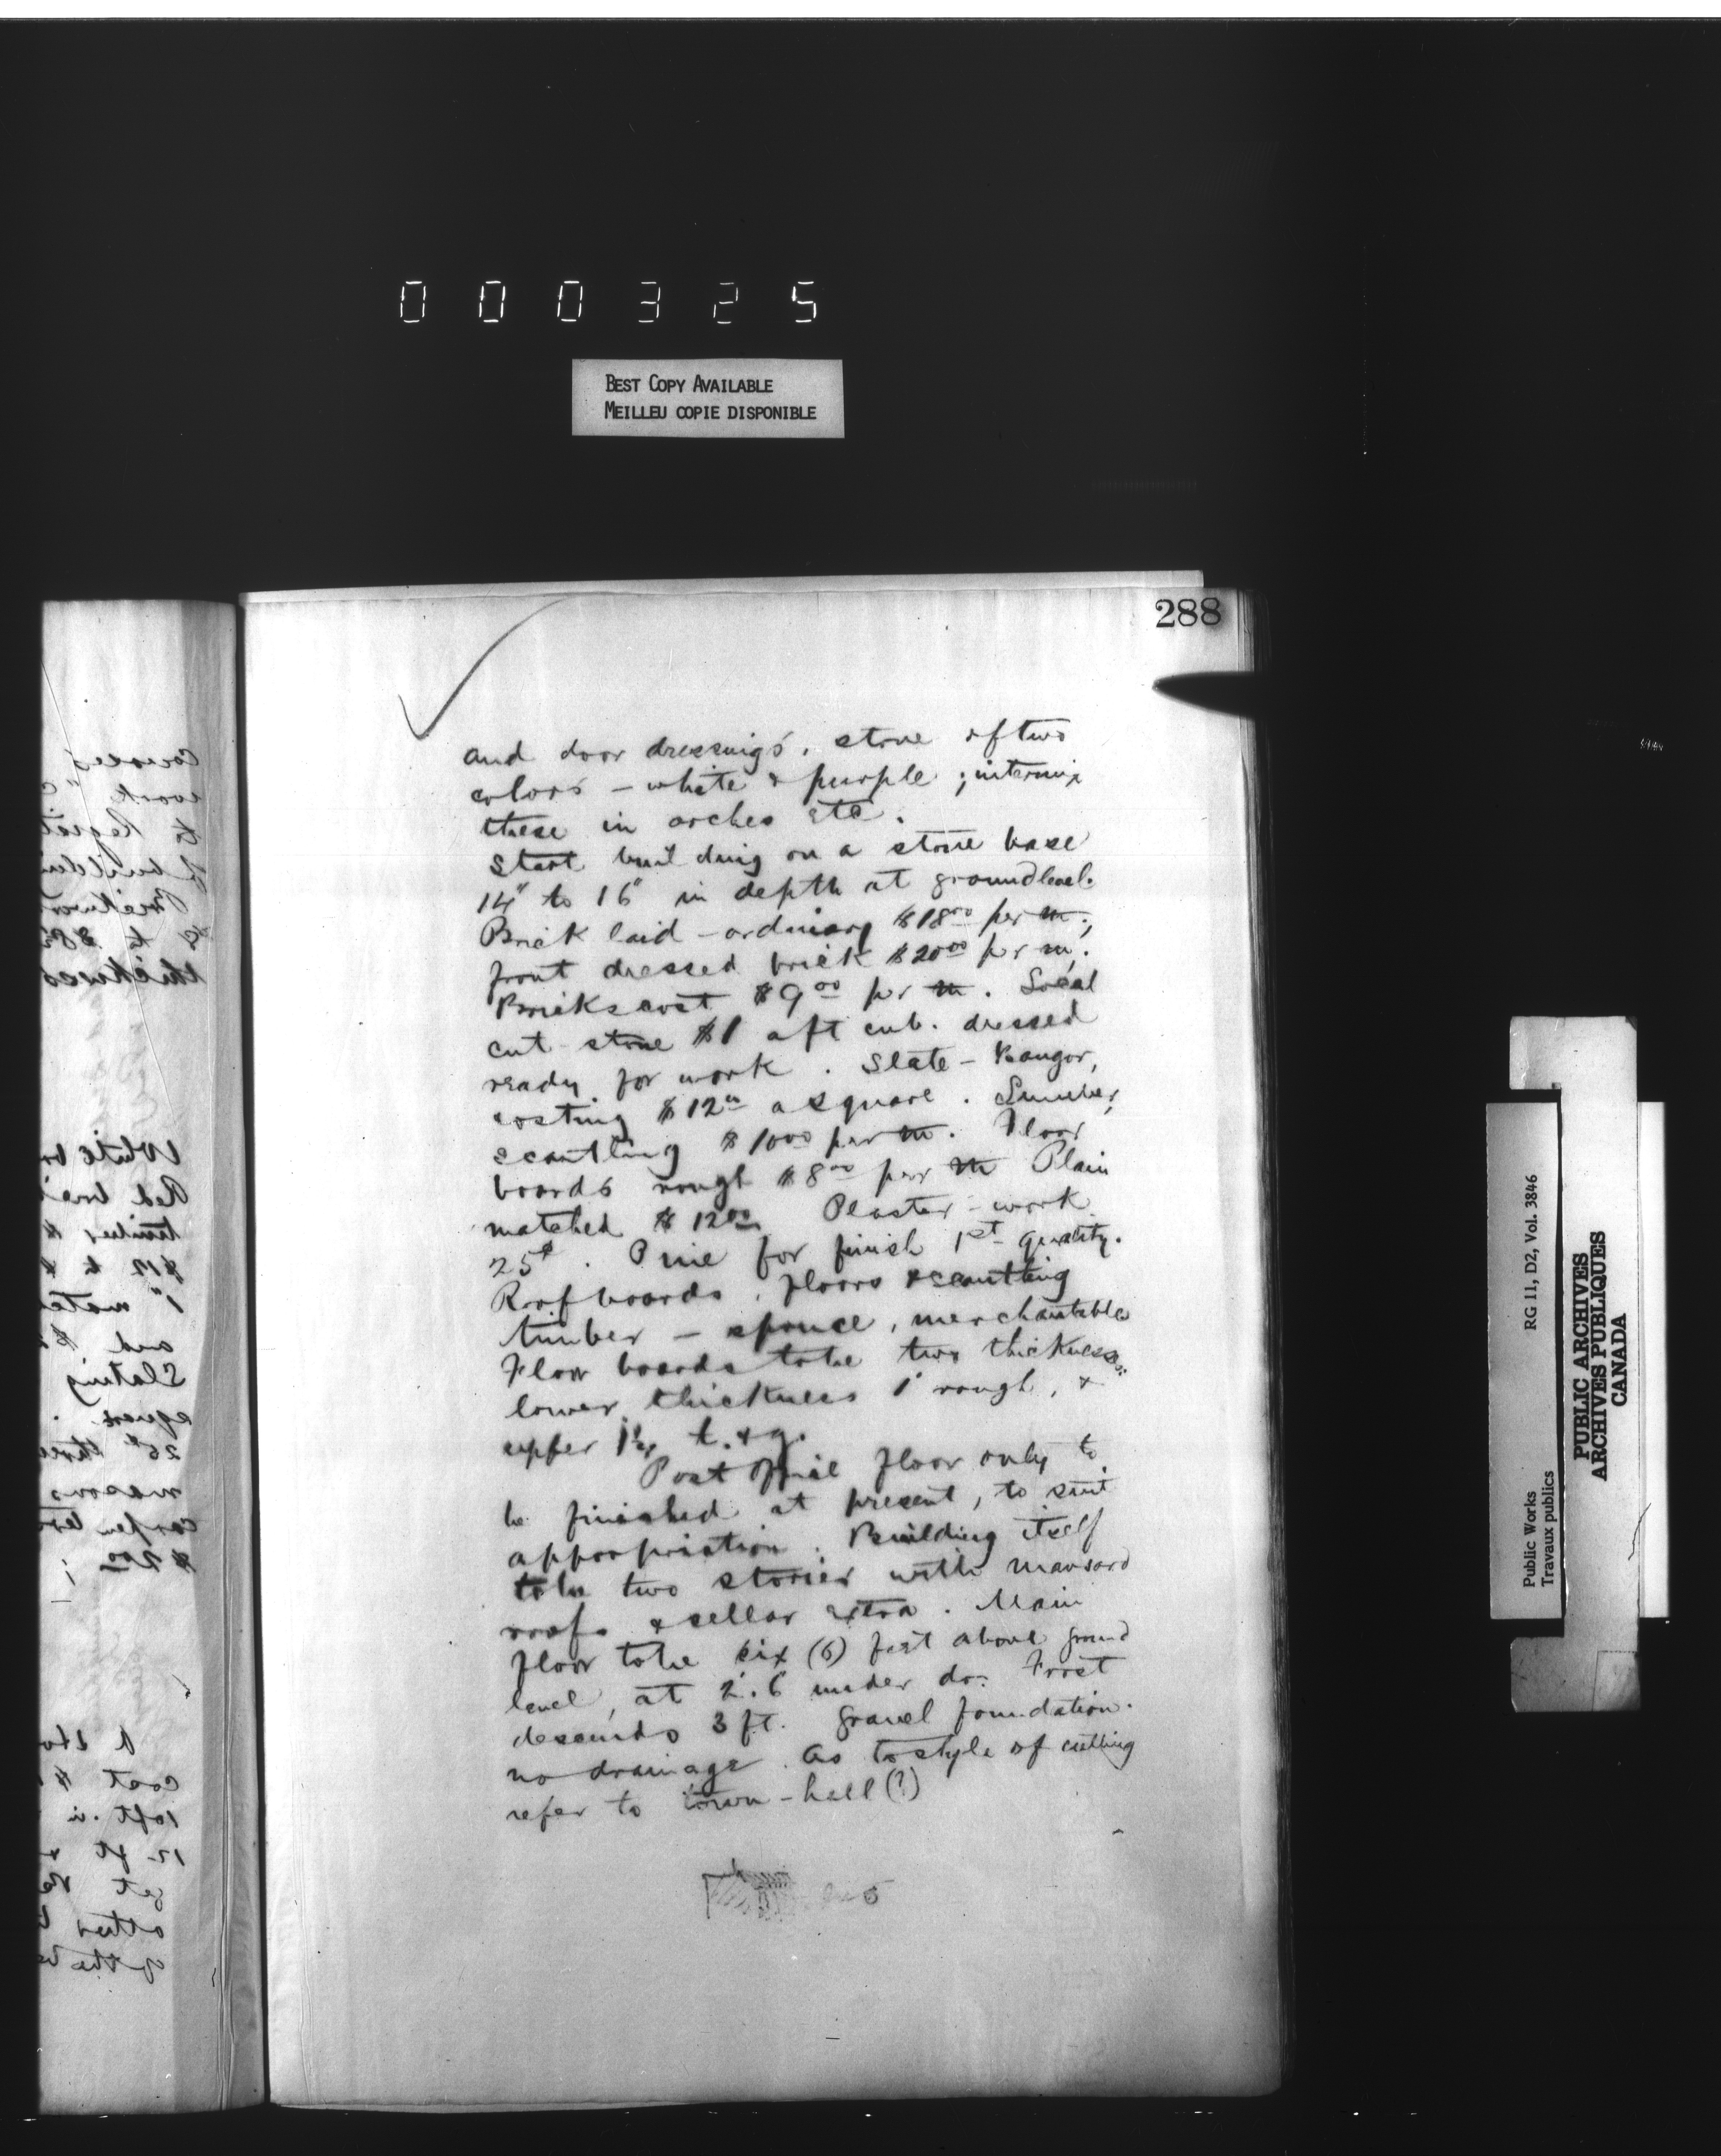 000325
BEST COPY AVAILABLE
MEILLEU COPIE DISPONIBLE
288
and door dressings. stone of two
colors - white & purple ; intermix
these in arches etc.
Start building on a stone base
14" to 16" in depth at ground level.
Brick laid - ordinary $18.00 per m;
front dressed brick $20.00 per m.
Bricks cost $9.00 per m. Local
cut-stone $1 a ft cub. dressed
ready for work. Slate - Bangor,
costing $12.00 a square. Lumber,
scantling $10.00 per m. Floor
boards rough $8.00 per m Plain
matched $12.00 Plaster-work
25¢. Pine for finish 1st quality.
Roof boards, floors & scantling
timber - spruce, merchantable
Floor boards to be two thicknesses:
lower thickness 1" rough, &
upper 1¼ t. & g.
Post Office floor only to
be finished at present, to suit
appropriation. Building itself
to be two stories with mansard
roof & cellar extra. Main
floor to be six (6) feet above ground
level, at 2'.6 under do. Frost
descends 3 ft. Gravel foundation.
no drainage. As to style of cutting
refer to town-hall (?)
Courses
work
to
building
Brickwork
thickness
White
Red
timber
$12 to $
1"
and $
Slating
square.
25¢
masons
carpenters
$2.00 ;
cost $
10 ft. in
12 ft
get
other
of the
Public Works RG 11, D2, Vol. 3846
Travaux publics
PUBLIC ARCHIVES
ARCHIVES PUBLIQUES
CANADA